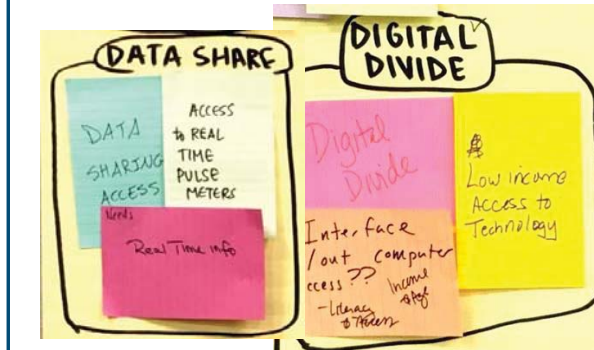 DATA SHARE
DATA
SHARING
ACCESS
ACCESS
to REAL
TIME
PULSE
METERS
Needs
Real Time info
DIGITAL
DIVIDE
Digital
Divide
Low income
Access to
Technology
Interface
/out computer
ccess??
Income
- Literacy
& Access